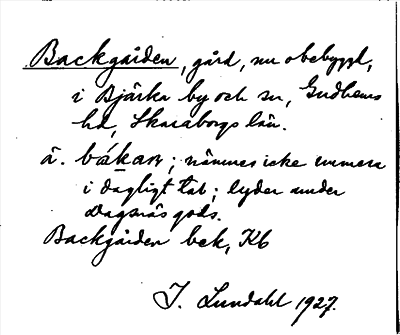 Backgården, gård, nu obebyggd,
i Bjärka by och sn, Gudhems
hd, Skaraborgs län.
ä. båkaɴ; nämnes icke numera
i dagligt tal; lyder under
Dagsnäs gods.
Backgården bek, Kb
J. Lundahl 1927.